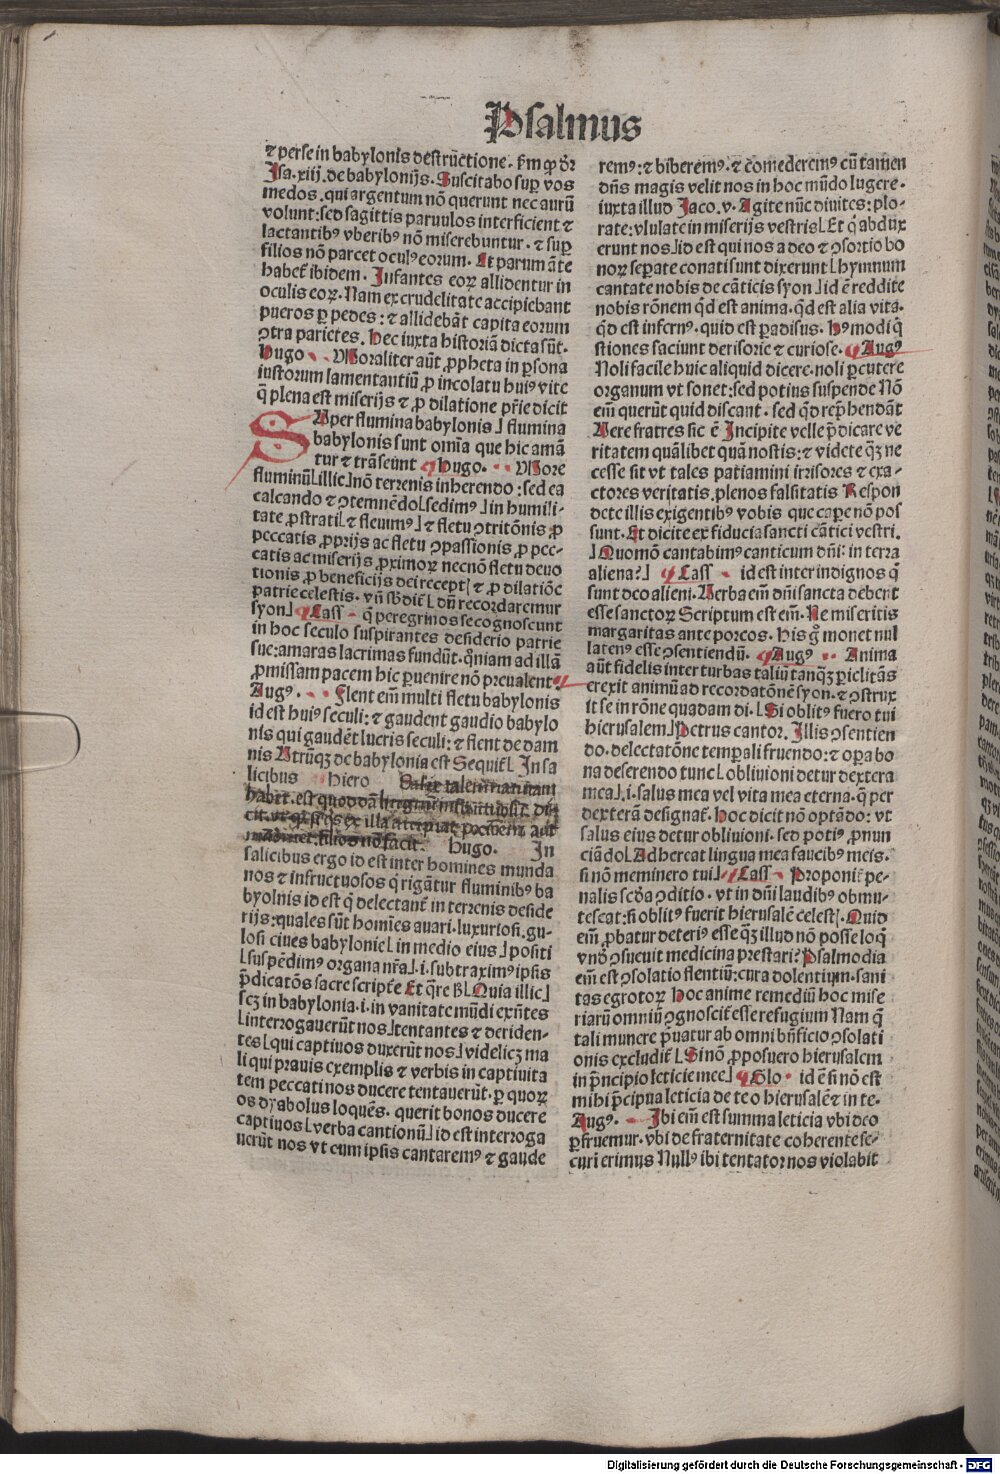 Psalmus
⁊ perse in babylonis destrūctione. s̄m qd̄ dr̄
Jsa. xiij. de babylonijs. Suscitabo sup vos
medos. qui argentum nō querunt nec aurū
volunt: sed sagittis paruulos interficient ⁊
lactantibꝰ vberibꝰ nō miserebuntur. ⁊ sup
filios nō parcet oculꝰ eorum. Et parum āte
habet̄ ibidem. Jnfantes eoꝝ allidentur in
oculis eoꝝ. Nam ex crudelitate accipiebant
pueros ꝑ pedes: ⁊ allidebāt capita eorum
ꝯtra parietes. Hec iuxta historiā dicta sūt.
Hugo. Moraliter aūt ꝓpheta in ꝑsona
iustorum lamentantiū ꝓ incolatu huiꝰ vite
q̄ plena est miserijs ⁊ ꝓ dilatione pr̄ie dicit
SUper flumina babylonis ⌋ flumina
babylonis sunt oīa que hic amā
tur ⁊ trāseūnt Hugo. More
fluminū⌊illic⌋nō terrenis inherendo: sed ea
calcando ⁊ ꝯtemnēdo⌊sedimꝰ⌋in humili-
tate ꝓstrati⌊⁊ fleuimꝰ⌋⁊ fletu ꝯtritōnis ꝓ
peccatis ꝓprijs ac fletu ꝯpassionis ꝓ pec-
catis ac miserijs ꝓximoꝝ necnō fletu deuo
tionis ꝓ beneficijs dei recept⌊⁊ ꝓ dilatiōe
patrie celestis. vn̄ sb̄dit̄⌊dn̄ recordaremur
syon⌋ Cass q̄ peregrinos se cognoscunt
in hoc seculo suspirantes desiderio patrie
sue: amaras lacrimas fundūt. qm̄iam ad illā
ꝓmissam pacem hic ꝑuenire nō preualent
Augꝰ. Flent em̄ multi fletu babylonis
id est huiꝰ seculi: ⁊ gaudent gaudio babylo
nis qui gaudēt lucris seculi: ⁊ flent de dam
nis Utrūqꝫ de babylonia est Sequit̄⌊Jn sa
licibus Hiero Salix talem naturam
habet.
Hugo. Jn
salicibus ergo id est inter homines munda
nos ⁊ infructuosos q̄ rigāt̄ur fluminibꝰ ba
byolnis id est q̄ delectant̄ in terrenis deside
rijs: quales sūt homīes auari. luxuriosi. gu-
losi ciues babylonie⌊in medio eius⌋positi
⌊suspēdimꝰ organa nr̄a⌋.i. subtraximꝰ ipsis
p̄dicatōs sacre scripte Et q̄re ß⌊Quia illic⌋
scꝫ in babylonia.i. in vanitate mūdi exn̄tes
⌊interrogauerūt nos⌋tentantes ⁊ deriden-
tes⌊qui captiuos duxerūt nos⌋videlicꝫ ma
li qui prauis exemplis ⁊ verbis in captiuita
tem peccati nos ducere tentauerūt. ꝑ quoꝝ
os dyabolus loquēs. querit bonos ducere
captiuos⌊verba cantionū⌋id est interroga
uerūt nos vt cum ipsis cantaremꝰ ⁊ gaude
remꝰ: ⁊ biberemꝰ. ⁊ cōmederemꝰ cū tamen
dn̄s magis velit nos in hoc mūdo lugere.
iuxta illud Jaco. v. Agite nūc diuites: plo-
rate: vlulate in miserijs vestris⌊Et q̄ abdux
erunt nos⌋id est qui nos a deo ⁊ ꝯsortio bo
noꝝ seꝑate conati sunt dixerunt⌊hymnum
cantate nobis de cāticis syon⌋id ē reddite
nobis rōnem qd̄ est anima. qd̄ est alia vita.
qd̄ est infernꝰ. quid est ꝑadisus. Hꝰmodi q̄
stiones faciunt derisorie ⁊ curiose. Augꝰ
Noli facile huic aliquid dicere. noli ꝑcutere
organum vt sonet: sed potius suspende Nō
em̄ querūt quid discant. sed qd̄ rep̄hendāt
Vere fratres sic ē Jncipite velle p̄dicare ve
ritatem quālibet quā nostis: ⁊ videte qꝫ ne
cesse sit vt tales patiamini irrisores ⁊ exa-
ctores veritatis. plenos falsitatis Respon
dete illis exigentibꝰ vobis que cape nō pos
sunt. Et dicite ex fiducia sancti cātici vestri.
⌋Quomō cantabimꝰ canticum dn̄i: in terra
aliena?⌋ Cass id est inter indignos q̄
sunt deo alieni. Verba em̄ dn̄i sancta debent
esse sanctoꝝ Scriptum est em̄. Ne miseritis
margaritas ante porcos. His g̊ monet nul
latenꝰ esse ꝯsentiendū. Augꝰ Anima
aūt fidelis inter turbas taliū tanqꝫ ꝑiclitās
erexit animū ad recordatōnē syon. ⁊ ꝯstrux
it se in rōne quadam di.⌊Si oblitꝰ fuero tui
hierusalem⌋Petrus cantor. Jllis ꝯsentien
do. delectatōne temꝑali fruendo: ⁊ oꝑa bo
na deserendo tunc⌊obliuioni detur dextera
mea⌋.i. salus mea vel vita mea eterna. q̄ per
dexterā designat̄. Hoc dicit nō optādo: vt
salus eius detur obliuioni. sed potiꝰ ꝓnun
ciādo⌊Adhereat lingua mea faucibꝰ meis.
si nō meminero tui⌋ Cass Proponit̄ pe-
nalis scd̄a ꝯditio. vt in dn̄i laudibꝰ obmu-
tescat: si oblitꝰ fuerit hierusalē celest⌊. Quid
em̄ ꝓbatur deteriꝰ esse qꝫ illud nō posse loq̄
vnd̄ ꝯsueuit medicina prestari? Psalmodia
em̄ est ꝯsolatio flentiū: cura dolentium. sani
tas egrotoꝝ Hoc anime remediū hoc mise
riarū omniū ꝯgnoscit̄ esse refugium Nam q̄
tali munere p̄uatur ab omni bn̄ficio ꝯsolati
onis excludit̄⌊Si nō ꝓposuero hierusalem
in p̄ncipio leticie mee⌋ Glo id ē si nō est
mihi p̄cipua leticia de te o hierusalē ⁊ in te.
Augꝰ. Jbi em̄ est summa leticia vbi deo
ꝑfruemur. vbi de fraternitate coherente se-
curi erimus Nullꝰ ibi tentator nos violabit
Digitalisierung gefördert durch die Deutsche Forschungsgemeinschaft - DFG